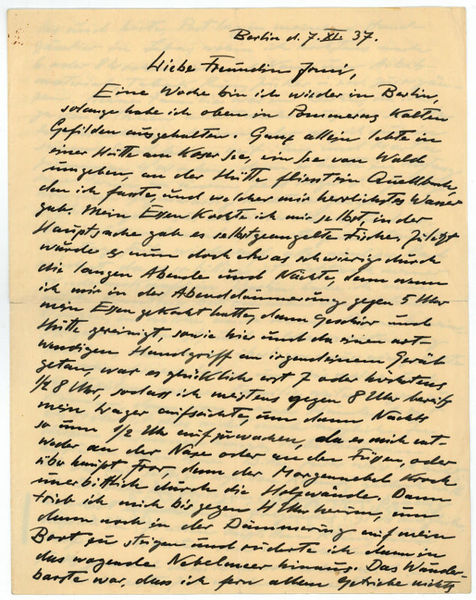 Berlin d. 7. XI. 37.
Liebe Freundin Joni,
Eine Woche bin ich wieder in Berlin,
solange habe ich oben in Pommerns kalten
Gefilden ausgehalten. Ganz allein lebte in
einer Hütte am See, ein See von Wald
umgeben, an der Hütte fliesst ein Quellbach,
den ich fasste, und welcher mir herrlichstes Wasser
gab. Mein Essen kochte ich mir selbst, in der
Hauptsache gab es selbstgeangelte Fische. Zuletzt
wurde es nun doch etwas schwierig durch
die langen Abende und Nächte, denn wenn
ich mir in der Abenddämmerung gegen 5 Uhr
mein Essen gekocht hatte, dann Geschirr und
Hütte gereinigt, sowie hier und da einen not-
wendigen Handgriff an irgendeinem Gerät
getan, war es glücklich erst 7 oder höchstens
1/2 8 Uhr, sodass ich meistens gegen 8 Uhr bereits
mein Lager aufsuchte, um dann Nachts
so um 1/2 Uhr aufzuwachen, da es mich ent-
weder an der Nase oder an den Füssen, oder
überhaupt fror, denn der Morgennebel kroch
unerbittlich durch die Holzwände. Dann
trieb ich mich bis gegen 4 Uhr herum, um
dann noch in der Dämmerung auf mein
Boot zu steigen und ruderte ich dann in
das wogende Nebelmeer hinaus. Das Wunder-
barste war, dass ich fern allem Getriebe nichts